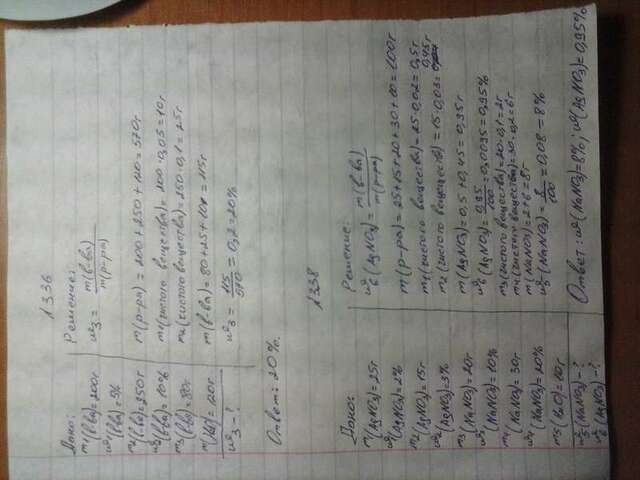 1336
Дано:
m1(в-ва)=200г
ω1(в-ва)=5%
m2(в-ва)=250г
ω2(в-ва)=10%
m3(в-ва)=80г
m(H2O)=120г
ω3-?
Решение:
ω3= m(в-ва)/m(р-ра)
m(р-ра)=200+250+120=570г
m1(чистого вещества)=200·0,05=10г
m2(чистого вещества)=250·0,1=25г
m(в-ва)=80+25+10=115г
ω3= 115/570=0,2=20%
Ответ: 20%.
1338
Дано:
m1(AgNO3)=25г
ω1(AgNO3)=2%
m2(AgNO3)=15г
ω2(AgNO3)=3%
m3(NaNO3)=20г
ω3(NaNO3)=10%
m4(NaNO3)=30г
ω4(NaNO3)=20%
m5(H2O)=10г
ω5(NaNO3)-?
ω6(AgNO3)-?
Решение:
ω6(AgNO3)= m(в-ва)/m(р-ра)
m(р-ра)=25+15+20+30+10=100г
m1(чистого вещества)=25·0,02=0,5г
m2(чистого вещества)=15·0,03=0,45г
m(AgNO3)=0,5+0,45=0,95г
ω6(AgNO3)= 0,95/100=0,0095=0,95%
m3(чистого вещества)=20·0,1=2г
m4(чистого вещества)=30·0,2=6г
m(NaNO3)=2+6=8г
ω5(NaNO3)= 8/100=0,08=8%
Ответ: ω(NaNO3)=8%; ω(AgNO3)=0,95%